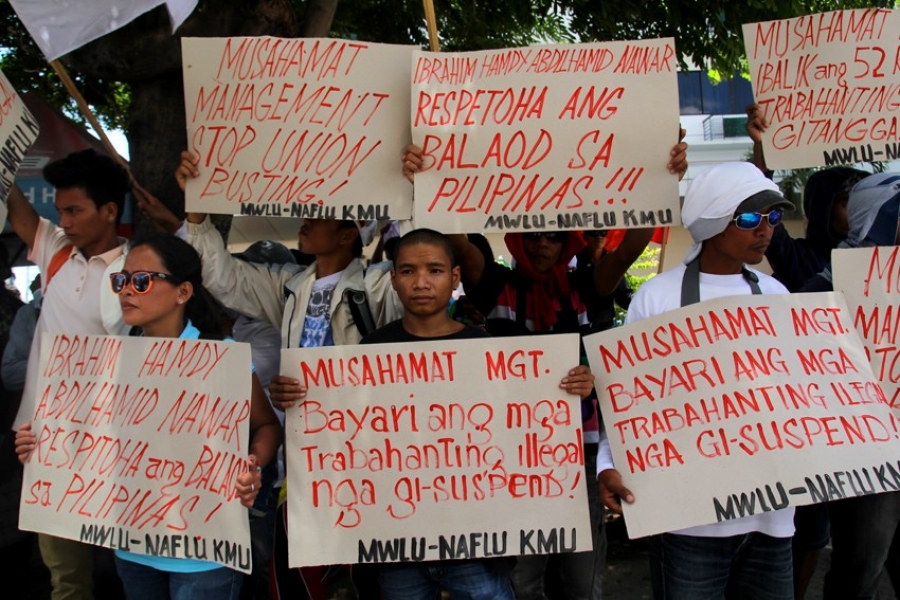 MUSAHAMAT
MANAGEMENT
STOP UNION
BUSTING!
MWLU-NAFLU KMU
IBRAHIM HAMDY ABDILHAMID NAWAR
RESPETOHA ANG
BALAOD SA
PILIPINAS!!!
MWLU-NAFLU KMU
MUSAHAMAT
IBALIK ang 52
TRABAHANTING
GITANGGA
MWLU-NA
IBRAHIM HAMDY
ABDILHAMID NAWAR
RESPITOHA ang BALAOD
sa PILIPINAS!
MWLU-NAFLU KMU
MUSAHAMAT MGT.
Bayari ang mga
Trabahanting illegal
nga gi-suspend!
MWLU-NAFLU KMU
MUSAHAMAT MGT.
BAYARI ANG MGA
TRABAHANTING ILIGAL
NGA GI-SUSPEND!
MWLU-NAFLU KMU